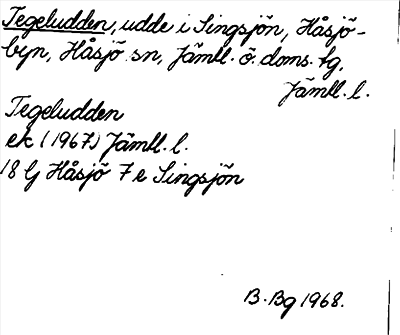 Tegeludden, udde i Singsjön, Håsjö-
byn, Håsjö sn, Jämtl. ö. doms. tg,
Jämtl. l.
Tegeludden
ek (1967) Jämtl. l.
18 G Håsjö 7 e Singsjön
B. Bg 1968.